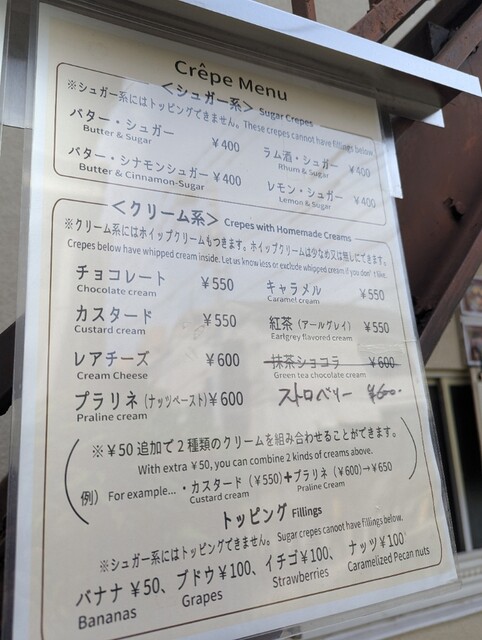 Crêpe Menu
＜シュガー系＞ Sugar Crepes
※シュガー系にはトッピングできません。These crepes cannot have fillings below.
バター・シュガー ¥400
Butter & Sugar
ラム酒・シュガー ¥400
Rhum & Sugar
バター・シナモンシュガー ¥400
Butter & Cinnamon-Sugar
レモン・シュガー ¥400
Lemon & Sugar
＜クリーム系＞ Crepes with Homemade Creams
※クリーム系にはホイップクリームもつきます。ホイップクリームは少なめ又は無しにできます。
Crepes below have whipped cream inside. Let us know less or exclude whipped cream if you don't like.
チョコレート ¥550
Chocolate cream
キャラメル ¥550
Caramel cream
カスタード ¥550
Custard cream
紅茶（アールグレイ） ¥550
Earlgrey flavored cream
レアチーズ ¥600
Cream Cheese
抹茶ショコラ ¥600
Green tea chocolate cream
プラリネ（ナッツペースト）¥600
Praline cream
ストロベリー ¥600.
※¥50追加で2種類のクリームを組み合わせることができます。
With extra ¥50, you can combine 2 kinds of creams above.
例） For example... ・カスタード（¥550）＋プラリネ（¥600）→¥650
Custard cream Praline Cream
トッピング Fillings
※シュガー系にはトッピングできません。 Sugar crepes canoot have fillings below.
バナナ ¥50、ブドウ ¥100、イチゴ ¥100、 ナッツ ¥100
Bananas Grapes Strawberries Caramelized Pecan nuts